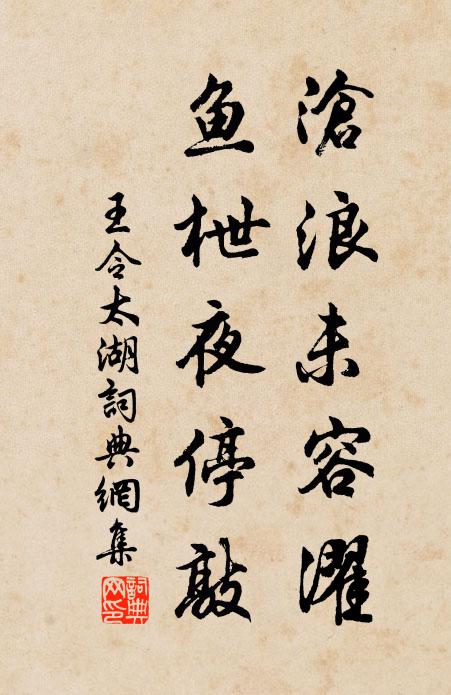 滄浪未容濯
鱼枻夜停敲
王令太湖詞典網集
詞典網印